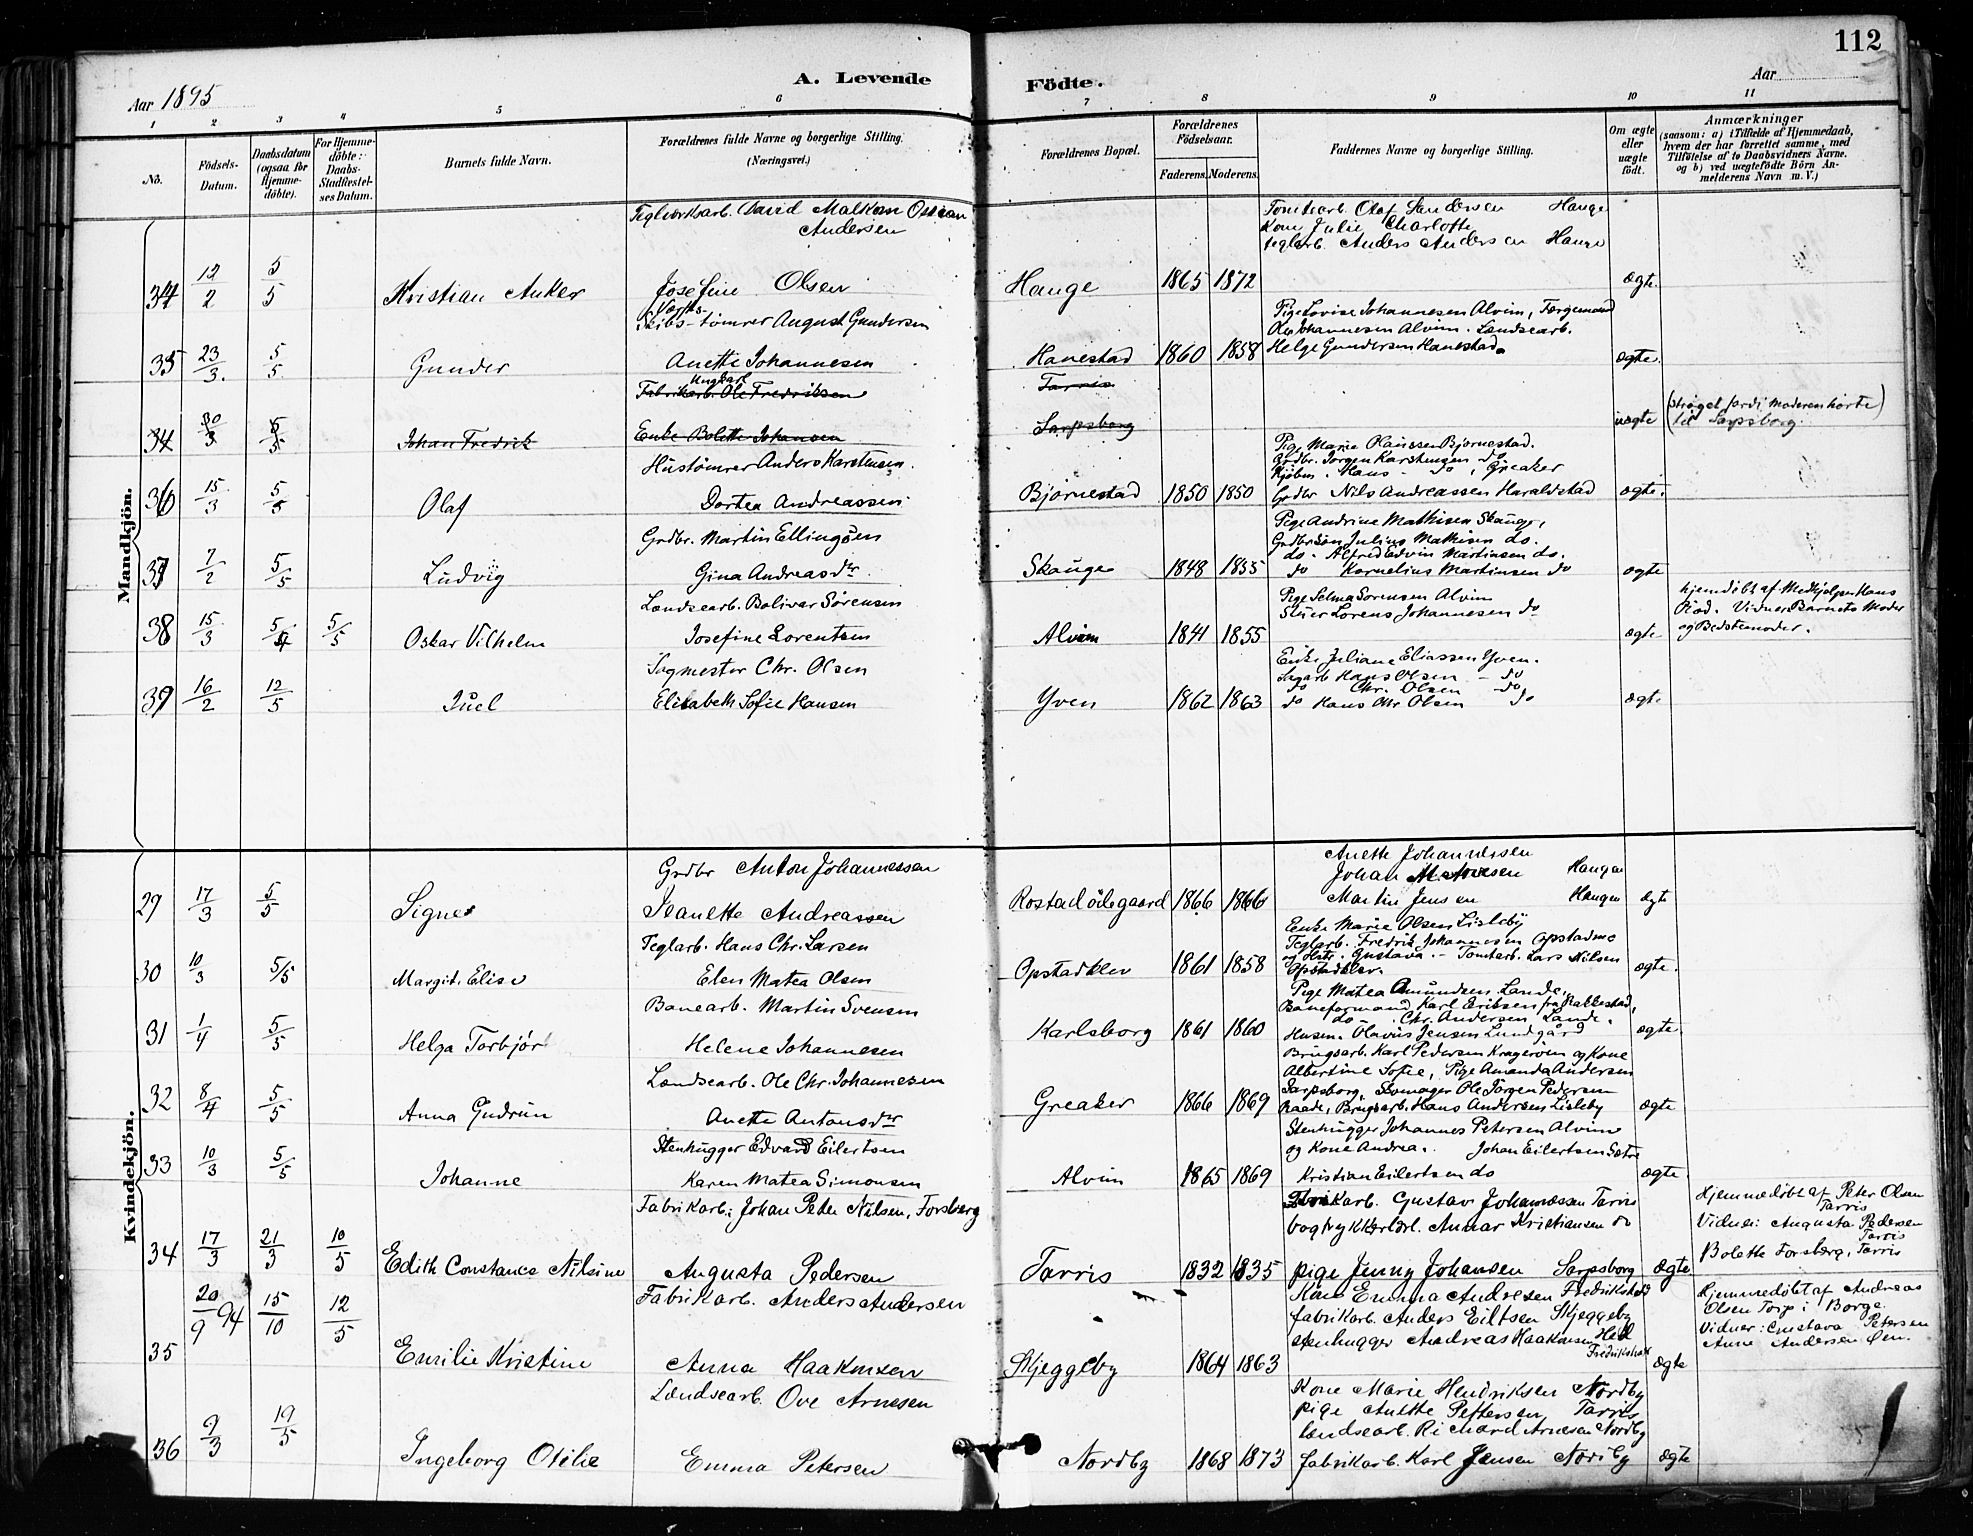 112
Aar 1895
A. Levende
Födte.
Aar
1 2 3 4 5 6 7 8 9 10 11
No.
Födsels-Datum.
Daabsdatum (ogsaa for Hjemme-döbte).
For Hjemme-döbte: Daabs-Stadfæstel-ses Datum.
Barnets fulde Navn.
Forældrenes fulde Navne og borgerlige Stilling. (Næringsvei.)
Forældrenes Bopæl.
Forældrenes Födselsaar.
Faderens. Moderens.
Faddernes Navne og borgerlige Stilling.
Om ægte eller uægte födt.
Anmærkninger
(saasom: a) i Tilfælde af Hjemmedaab, hvem der har forrettet samme, med Tilföielse af to Daabsvidners Navne. og b) ved uægtefödte Börn An-melderens Navn m. V.)
Mandkjön.
Teglverksarb. David Malkom Ossian Andersen
Tomtearb. Olaf Andersen Hauge
Kone Julie Charlotte
teglarb. Anders Andersen Hauge
34 12/2 5/5 Kristian Anker Josefine Olsen Hauge 1865 1872 ægte.
Værfts-
Skibs-tømrer August Gundersen
Pige Lovise Johannesen Alvim, Færgemand
Ole Johannesen Alvim. Landsearb.
35 23/3. 5/5 Gunder Anette Johannesen Hanestad 1860 1858 Helge Gundersen Hanestad. ægte.
Ungkarl
Fabrikarb. Ole Fredriksen Tarris
34 30/3 5/5 Johan Fredrik Enke Bolette Johansen Sarpsborg uægte (strøget fordi moderen hørte) til Sarpsborg.
Hustømrer Anders Karstensen.
Pige Marie Olaussen Bjørnestad.
Grdbr. Jørgen Karstensen do
Kjøbm. Hans - do, Greaker
36 15/3 5/5 Olaf Dortea Andreassen Bjørnestad 1850 1850 Grdbr Nils Andreassen Haraldstad ægte.
Grdbr. Martin Ellingsen
Pige Andrine Mathisen Skauge,
Grdbrsøn Julius Mathisen do.
do. Alfred Edvin Martinsen do.
37 7/2 5/5 Ludvig Gina Andreasdr. Skauge 1848 1855 do Kornelius Martinsen do ægte
Landsearb. Bolivar Sørensen
Pige Selma Sorensen Alvim
Stuer Lorens Johannesen do
hjemdøbt af Medhjelper Hans
Riød. Vidner Barnets Moder
og Bedstemoder.
38 15/3 5/4 5/5 Oskar Vilhelm Josefine Lorentsen Alvim 1841 1855 ægte
Sagmester Chr. Olsen
Enke Juliane Eliassen Yven.
Sagarb Hans Olsen - do
do Chr. Olsen - do
39 16/2 12/5 Juel Elisabeth Sofie Hansen Yven 1862 1863 do Hans Chr. Olsen do ægte
Kvindekjön.
Grdbr Anton Johannessen
Anette Johannessen
Johan Haugen
29 17/3 5/5 Signe Jeanette Andreassen Rostad ödegaard 1866 1866 Martin Jensen Haugen ægte
Teglarb. Hans Chr. Larsen
Enke Marie Olsen Lisleby
Teglarb. Fredrik Johannesen Opstadmo
og Hstr. Gustava. - Tomtearb. Lars Nilsen
Opstadklev.
30 10/3 5/5 Margit Elise Elen Matea Olsen Opstadklev 1861 1858 ægte.
Banearb. Martin Svensen
Pige Matea Amundsen Lande,
Baneformand Karl Eriksen fra Rakkestad,
do - Chr. Andersen Lande.
31 1/4 5/5 Helga Torbjør Helene Johannesen Karlsborg 1861 1860 Husm. Olavus Jensen Lundgård ægte.
Landsearb. Ole Chr. Johannesen
Brugsarb. Karl Pedersen Kragerøen og Kone
Albertine Sofie, Pige Amanda Andersen
Sarpsborg, Skomager Ole Jørgen Pedersen
32 8/4 5/5 Anna Gudrun Anette Antonsdr Greaker 1866 1869 Raade, Brugsarb. Hans Andersen Lisleby ægte
Stenhugger Edvard Eilertsen
Stenhugger Johannes Petersen Alvim
og Kone Andrea. Johan Eilertsen Sætre
33 10/3 5/5 Johanne Karen Matea Simonsen Alvim 1865 1869 Kristian Eilertsen do ægte
Fabrikarb. Johan Peter Nilsen, Forsberg
Fabrikarb. Gustav Johannesen Tarris
bogtrykkerlærl. Annar Kristiansen do
Hjemmedøbt af Peter Olsen
Tarris
Vidner: Augusta Pedersen
Tarris
Bolette Forsberg, Tarris
34 17/3 21/3 10/5 Edith Constance Nilsine Augusta Pedersen Tarris 1832 1835 pige Jenny Johansen Sarpsborg ægte
Fabrikarb. Anders Andersen
Kone Emma Andresen Fredrikshald
fabrikarb. Anders Eiltsen Skjeggeby
stenhugger Andreas Haakensen
Fredrikshald
Hjemmedøbt af Andreas
Olsen Torp i Borge.
Vidner: Gustava Petersen
Anne Andersen Øen.
35 20/9 94 15/10 12/5 Emilie Kristine Anna Haakensen Skjeggeby 1864 1863 ægte
Landsearb. Ove Arnesen
Kone Marie Hendriksen Nordby
pige Anette Pettersen Tarris
landsearb. Richard Arnesen Nordby
36 9/3 19/5 Ingeborg Otilie Emma Petersen Nordby 1868 1873 fabrikarb. Karl Jensen Nordby ægte